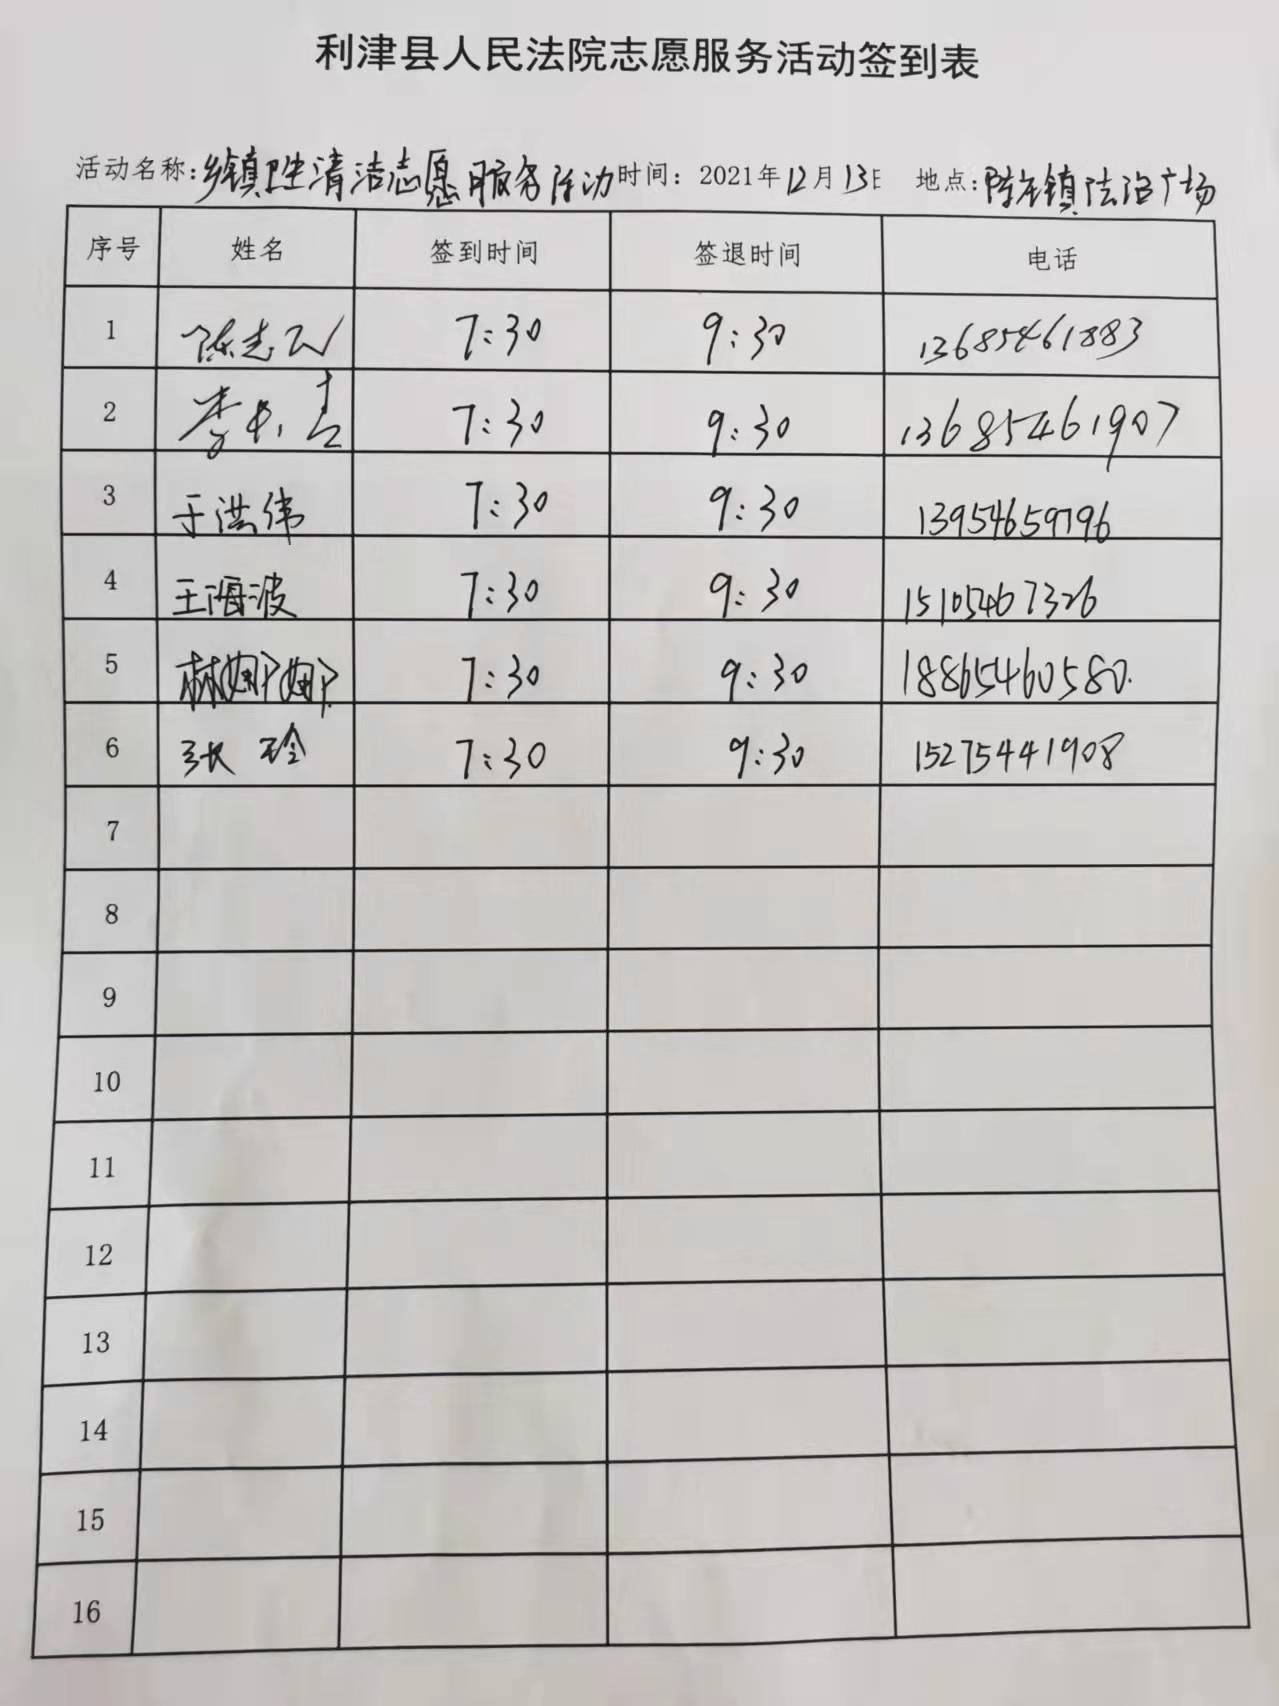 利津县人民法院志愿服务活动签到表
活动名称:乡镇卫生清洁志愿服务活动 时间：2021年12月13日 地点:陈庄镇法治广场
序号 姓名 签到时间 签退时间 电话
1 陈志 7:30 9:30 13685461883
2 李 7:30 9:30 13685461907
3 于洪伟 7:30 9:30 13954659796
4 王海波 7:30 9:30 15105467326
5 林娜娜 7:30 9:30 18865460580.
6 张玲 7:30 9:30 15275441908
7
8
9
10
11
12
13
14
15
16